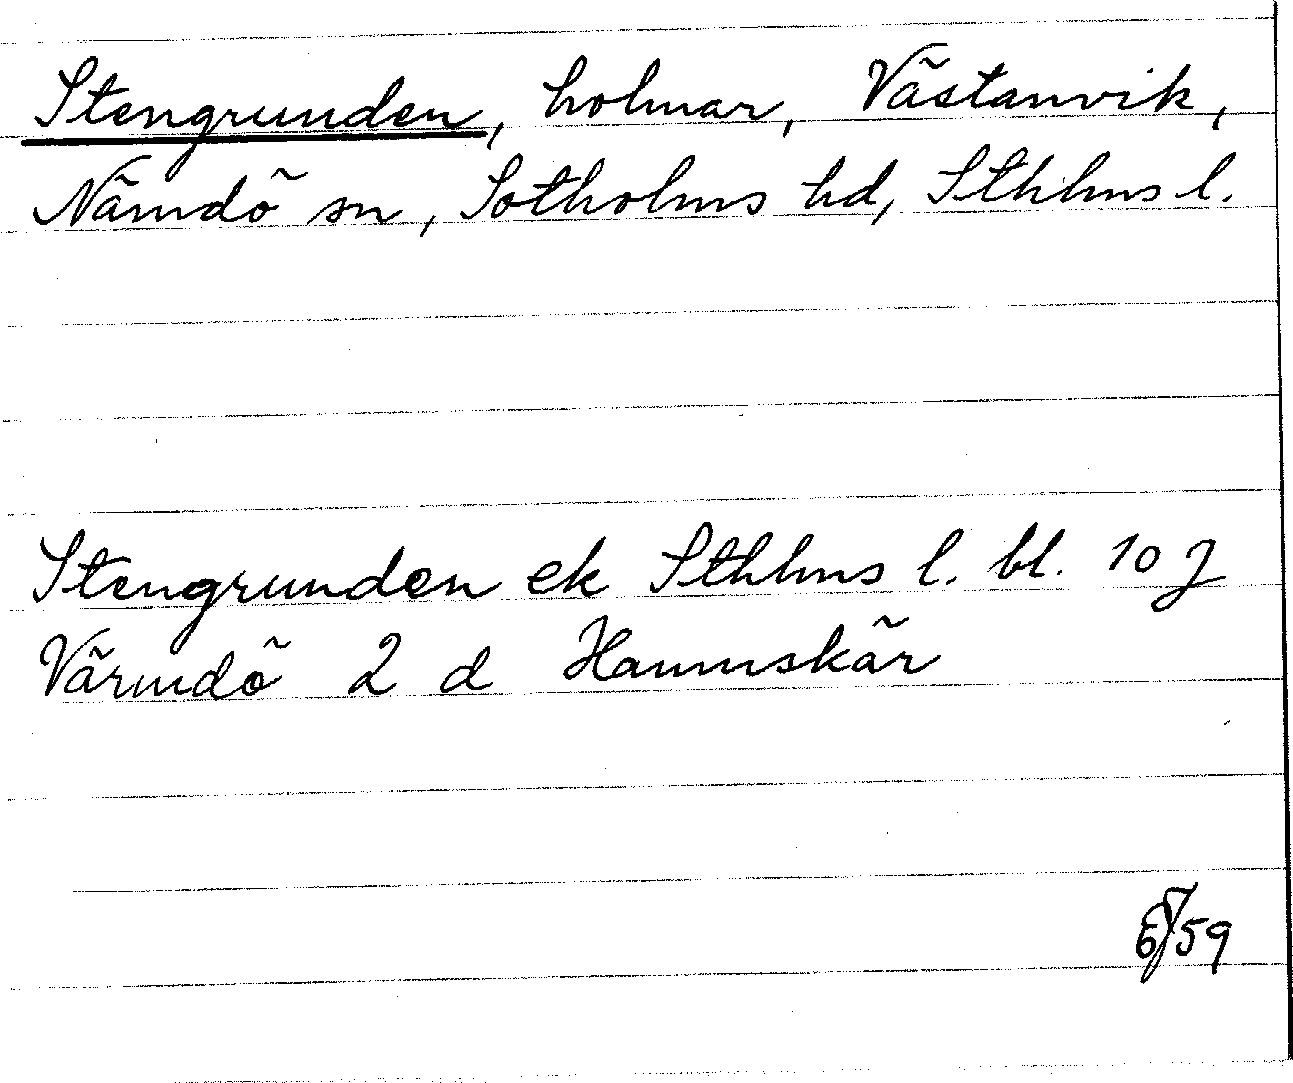 Stengrunden, holmar, Västanvik,
Nämdö sn, Sotholms hd, Sthlms l.
Stengrunden ek Sthlms l. bl. 10 J
Värmdö 2 d Hamnskär
59